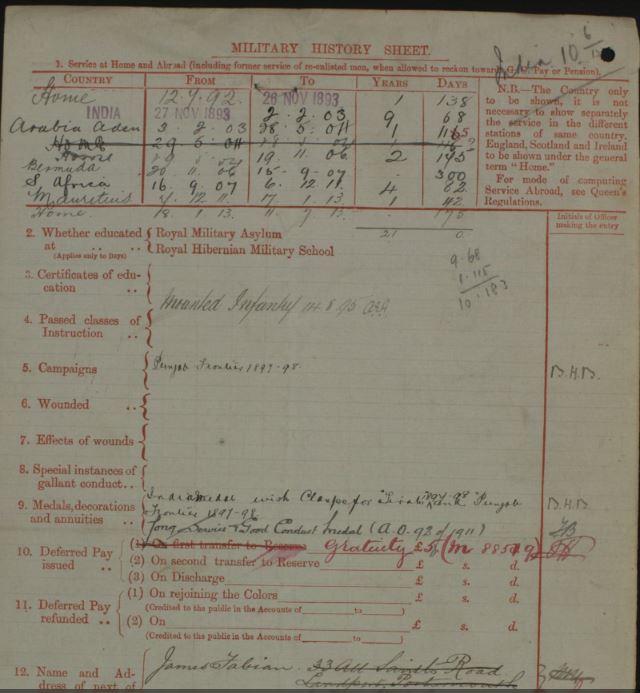 India 10 6/
MILITARY HISTORY SHEET.
1. Service at Home and Abroad (including former service of re-enlisted men, when allowed to reckon towards G.C. Pay or Pension).
COUNTRY FROM TO YEARS DAYS
Home 12.7.92. 26 NOV 1893 1 138
INDIA 27 NOV 1893 2.2.03 9 68
Arabia Aden 3.2.03 1
Home
Home 19.11.06 2 195
Bermuda 20.11.06 15.9.07 300
S. Africa 16.9.07 6.12.11 4 82
Mauritius 7.12.11 17.1.13 1 42
Home 18.1.13. 11.7.13. 175
21 0
N.B.—The Country only
to be shown, it is not
necessary to show separately
the service in the different
stations of same country.
England, Scotland and Ireland
to be shown under the general
term "Home."
For mode of computing
Service Abroad, see Queen's
Regulations.
Initials of Officer
making the entry
2. Whether educated at
(Applies only to Boys)
Royal Military Asylum
Royal Hibernian Military School
9.68
1.115
10.183
3. Certificates of education
Mounted Infantry
4. Passed classes of
Instruction
5. Campaigns Punjab Frontier 1897-98 B.H.B.
6. Wounded
7. Effects of wounds
8. Special instances of
gallant conduct
9. Medals, decorations
and annuities
India medal with Clasps for "Punjab
Frontier 1897-98 B.H.B
Long Service & Good Conduct medal (A.O. 92 of 1911)
10. Deferred Pay
issued
(1) On first transfer to Reserve Gratuity £5
(2) On second transfer to Reserve £ s. d.
(3) On Discharge £ s. d.
11. Deferred Pay
refunded
(1) On rejoining the Colors £ s. d.
(Credited to the public in the Accounts of to )
(2) On £ s. d.
(Credited to the public in the Accounts of to )
12. Name and Ad-
dress of next of
James Fabian. 33 All Saints Road
Landport, Portsmouth